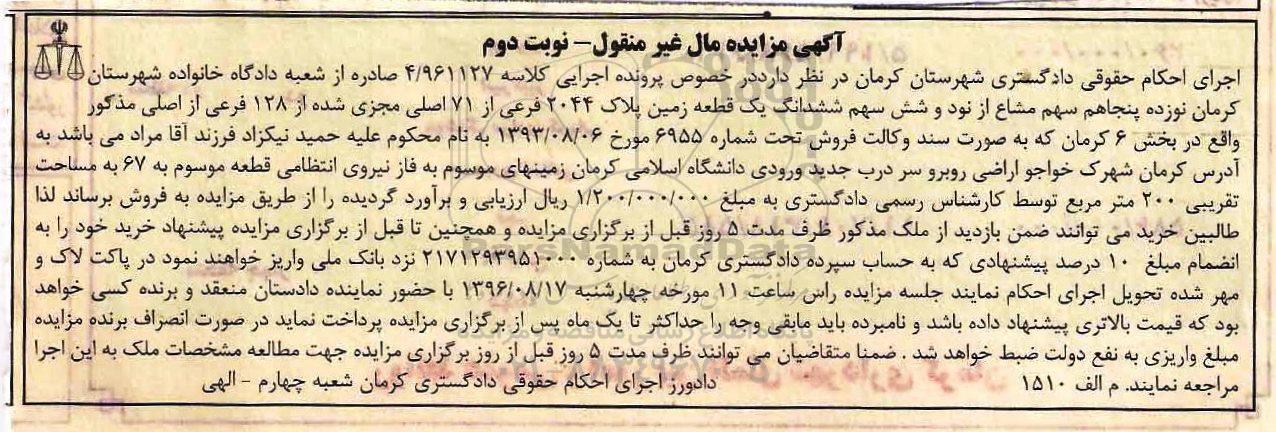 آگهی مزایده مال غیر منقول– نوبت دوم
اجرای احکام حقوقی دادگستری شهرستان کرمان در نظر دارددر خصوص پرونده اجرایی کلاسه ۴/۹۶۱۱۲۷ صادره از شعبه دادگاه خانواده شهرستان
کرمان نوزده پنجاهم سهم مشاع از نود و شش سهم ششدانگ یک قطعه زمین پلاک ۲۰۴۴ فرعی از ۷۱ اصلی مجزی شده از ۱۲۸ فرعی از اصلی مذکور
واقع در بخش ۶ کرمان که به صورت سند وکالت فروش تحت شماره ۶۹۵۵ مورخ ۱۳۹۳/۰۸/۰۶ به نام محکوم علیه حمید نیکزاد فرزند آقا مراد می باشد به
آدرس کرمان شهرک خواجو اراضی روبرو سر درب جدید ورودی دانشگاه اسلامی کرمان زمینهای موسوم به فاز نیروی انتظامی قطعه موسوم به ۶۷ به مساحت
تقریبی ۲۰۰ متر مربع توسط کارشناس رسمی دادگستری به مبلغ ۱/۲۰۰/۰۰۰/۰۰۰ ریال ارزیابی و برآورد گردیده را از طریق مزایده به فروش برساند لذا
طالبین خرید می توانند ضمن بازدید از ملک مذکور ظرف مدت ۵ روز قبل از برگزاری مزایده و همچنین تا قبل از برگزاری مزایده پیشنهاد خرید خود را به
انضمام مبلغ ۱۰ درصد پیشنهادی که به حساب سپرده دادگستری کرمان به شماره ۲۱۷۱۲۹۳۹۵۱۰۰۰ نزد بانک ملی واریز خواهند نمود در پاکت لاک و
مهر شده تحویل اجرای احکام نمایند جلسه مزایده راس ساعت ۱۱ مورخه چهارشنبه ۱۳۹۶/۰۸/۱۷ با حضور نماینده دادستان منعقد و برنده کسی خواهد
بود که قیمت بالاتری پیشنهاد داده باشد و نامبرده باید مابقی وجه را حداکثر تا یک ماه پس از برگزاری مزایده پرداخت نماید در صورت انصراف برنده مزایده
مبلغ واریزی به نفع دولت ضبط خواهد شد . ضمنا متقاضیان می توانند ظرف مدت ۵ روز قبل از روز برگزاری مزایده جهت مطالعه مشخصات ملک به این اجرا
مراجعه نمایند. م الف ۱۵۱۰ دادورز اجرای احکام حقوقی دادگستری کرمان شعبه چهارم - الهی
ParsNamadData